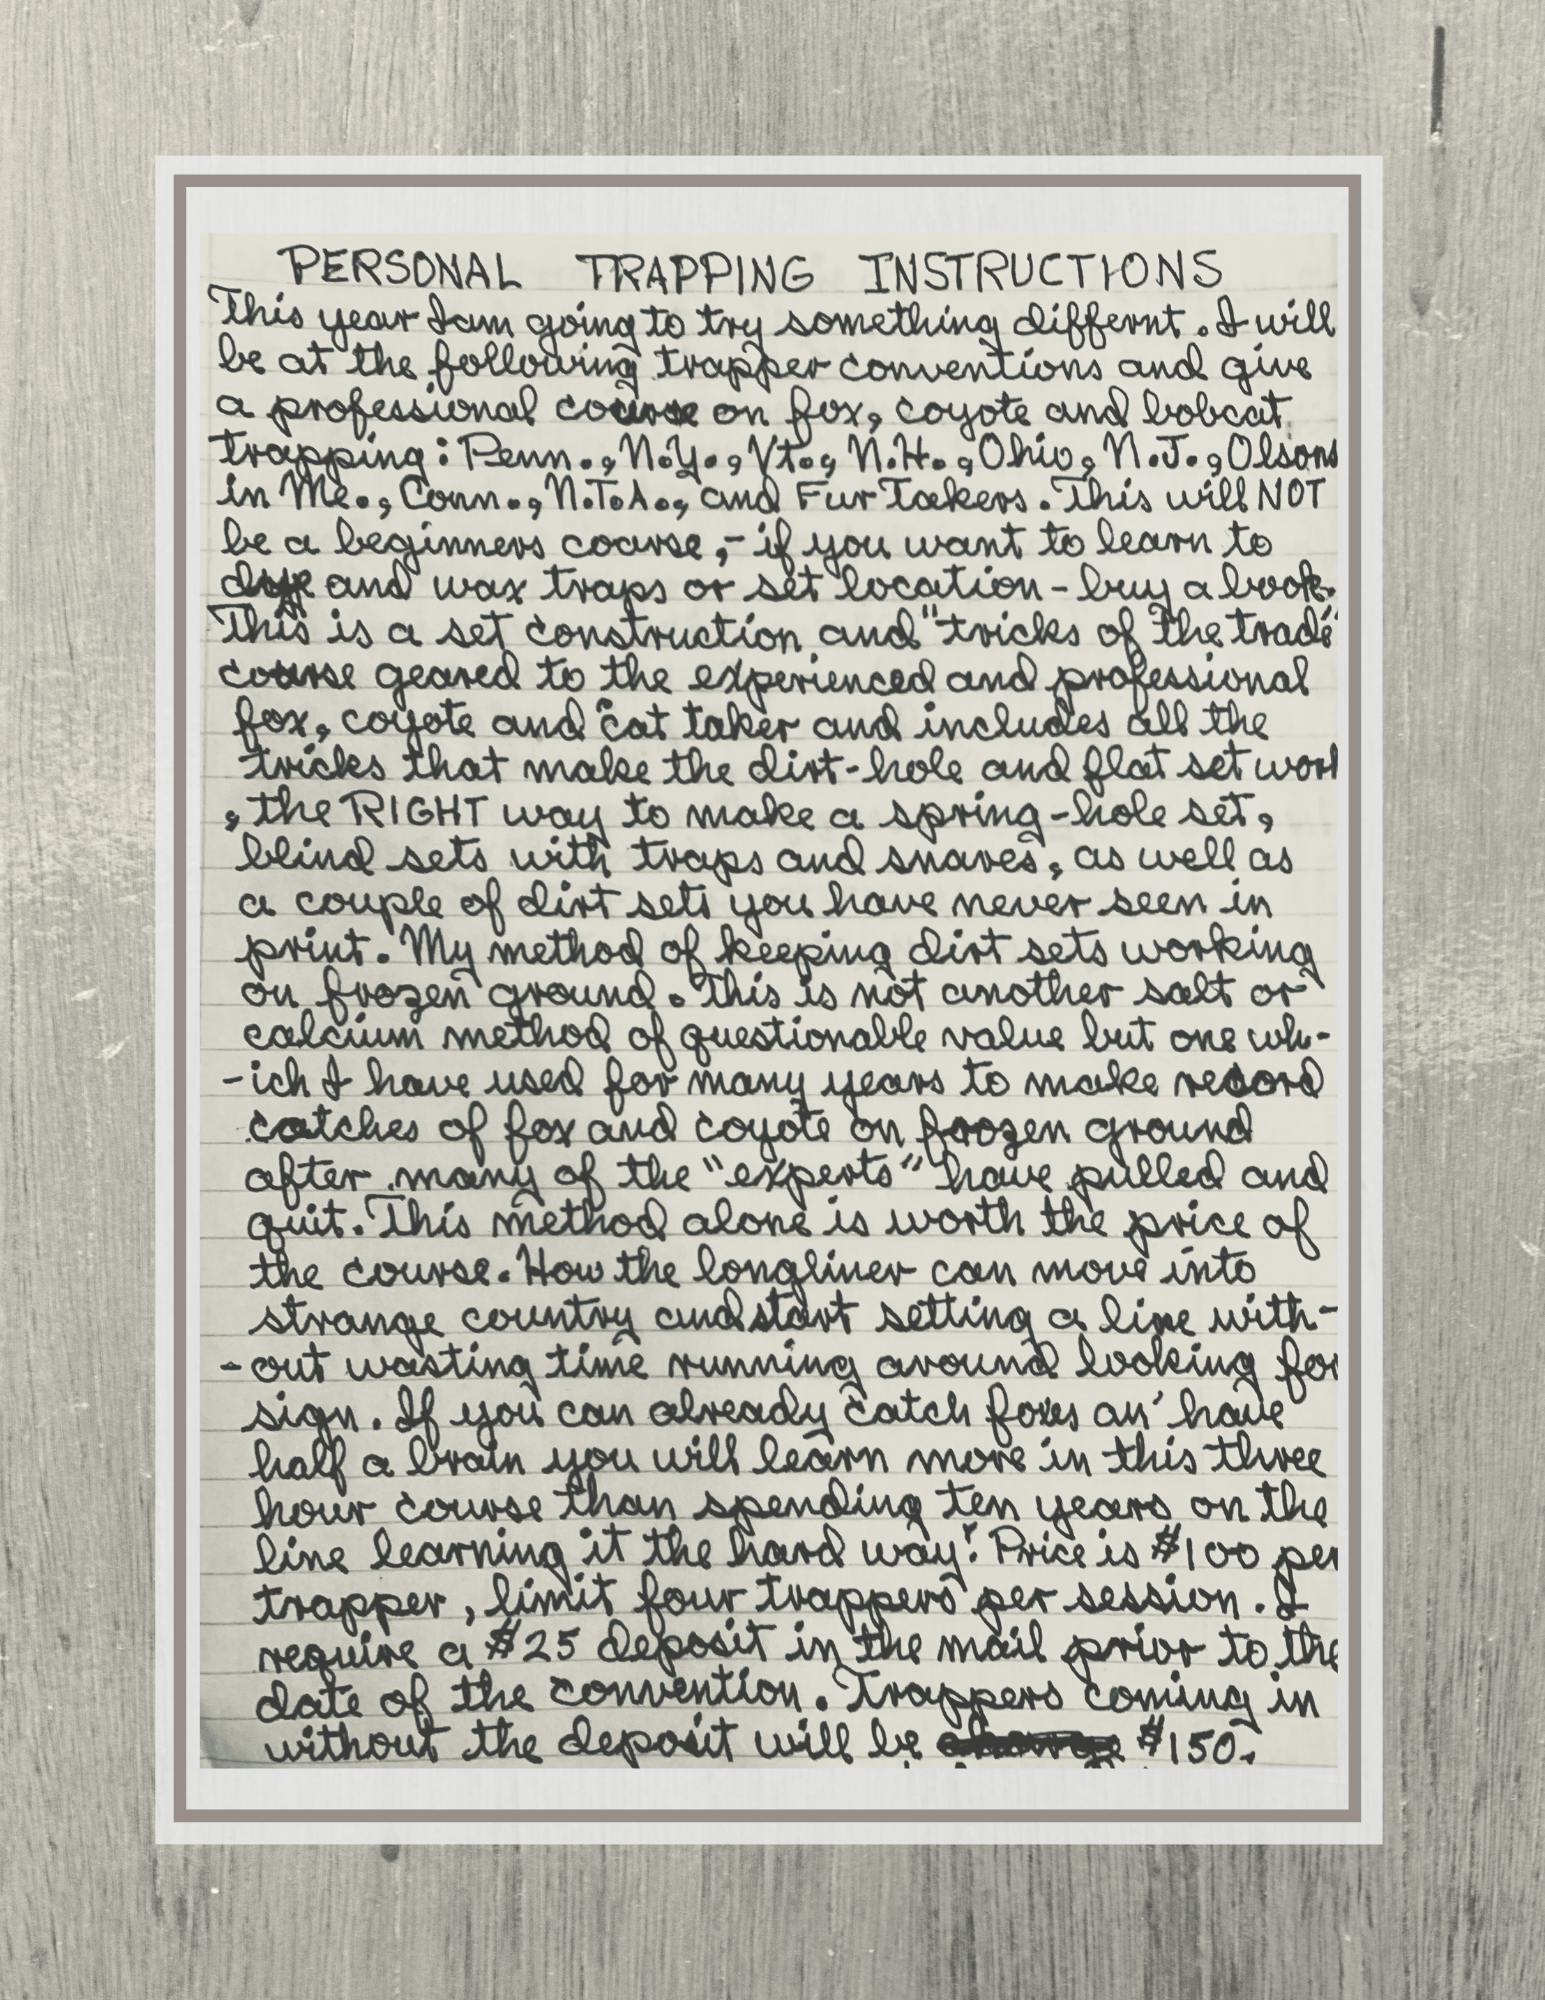 PERSONAL TRAPPING INSTRUCTIONS
This year I am going to try something differnt. I will
be at the following trapper conventions and give
a professional course on fox, coyote and bobcat
trapping: Penn., N.Y., Vt., N.H., Ohio, N.J., Olsons
in Me., Conn., N.T.A., and Fur Takers. This will NOT
be a beginners coarse,- if you want to learn to
dye and wax traps or set location - buy a book.
This is a set construction and "tricks of the trade"
course geared to the experienced and professional
fox, coyote and 'cat taker and includes all the
tricks that make the dirt-hole and flat set work
, the RIGHT way to make a spring-hole set,
blind sets with traps and snares, as well as
a couple of dirt sets you have never seen in
print. My method of keeping dirt sets working
on frozen ground. This is not another salt or
calcium method of questionable value but one wh-
-ich I have used for many years to make record
catches of fox and coyote on frozen ground
after many of the "experts" have pulled and
quit. This method alone is worth the price of
the course. How the longliner can move into
strange country and start setting a line with-
-out wasting time running around looking for
sign. If you can already catch foxes an' have
half a brain you will learn more in this three
hour course than spending ten years on the
line learning it the hard way! Price is $100 per
trapper, limit four trappers per session. I
require a $25 deposit in the mail prior to the
date of the convention. Trappers coming in
without the deposit will be $150.